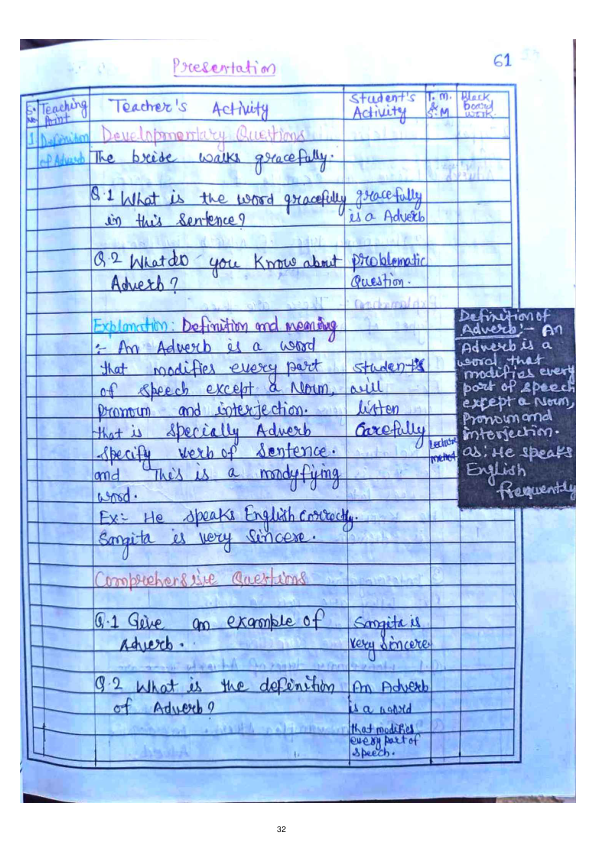 Presentation
61
S. No.
Teaching Point
Teacher's Activity
Student's Activity
T. M. & S. M
Black board work.
1 Definition of Adverb
Developmentary Questions
The bride walks gracefully.
Q.1 What is the word gracefully
in this Sentence?
gracefully
is a Adverb
Q.2 What do you Know about
Adverb?
problematic
Question.
Explanation: Definition and meaning
:- An Adverb is a word
that modifies every part
of speech except a Noun,
Pronoun and interjection.
that is specially Adverb
specify verb of Sentence.
and This is a modyfying
word.
Ex:- He speaks English Correctly.
Sangita is very Sincere.
students
will
listen
Carefully
Lecture
method
Definition of
Adverb:- An
Adverb is a
word that
modifies every
part of speech
except a Noun,
Pronoun and
interjection.
as: He speaks
English
frequently
Comprehensive Questions
Q.1 Give an example of
Adverb.
Sangita is
very sincere
Q.2 What is the definition
of Adverb?
An Adverb
is a word
that modifies
every part of
speech.
32